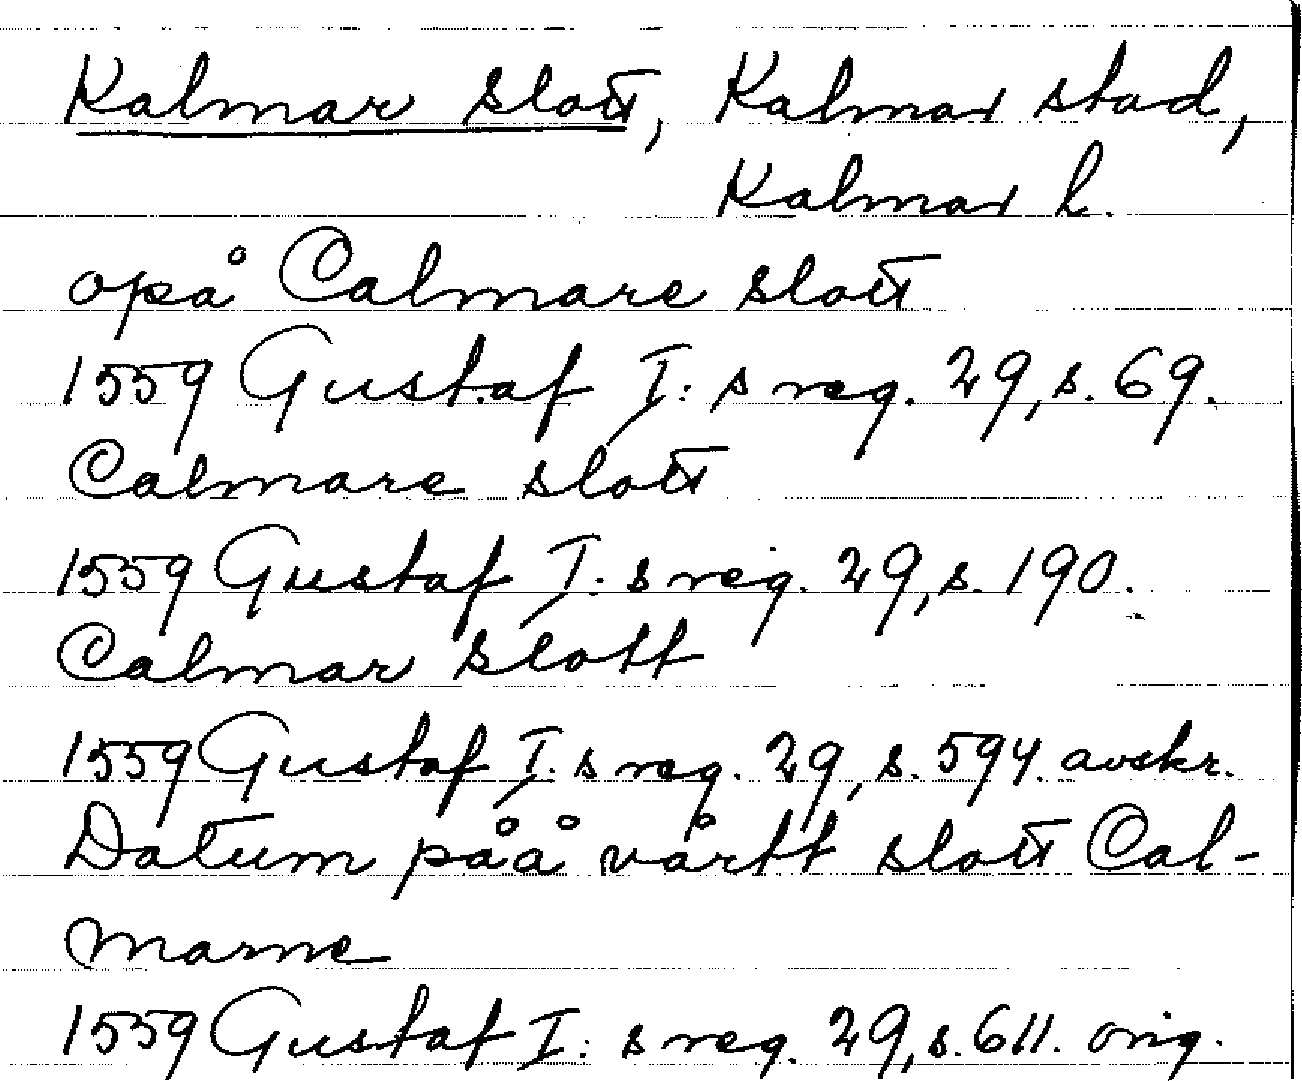 Kalmar slott, Kalmar stad,
Kalmar l.
opå Calmare slott
1559 Gustaf I: s reg. 29, s. 69.
Calmare slott
1559 Gustaf I: s reg. 29, s. 190.
Calmar slott
1559 Gustaf I: s reg. 29, s. 594. avskr.
Datum påå vårtt slott Cal-
marne
1559 Gustaf I: s reg. 29, s. 611. orig.